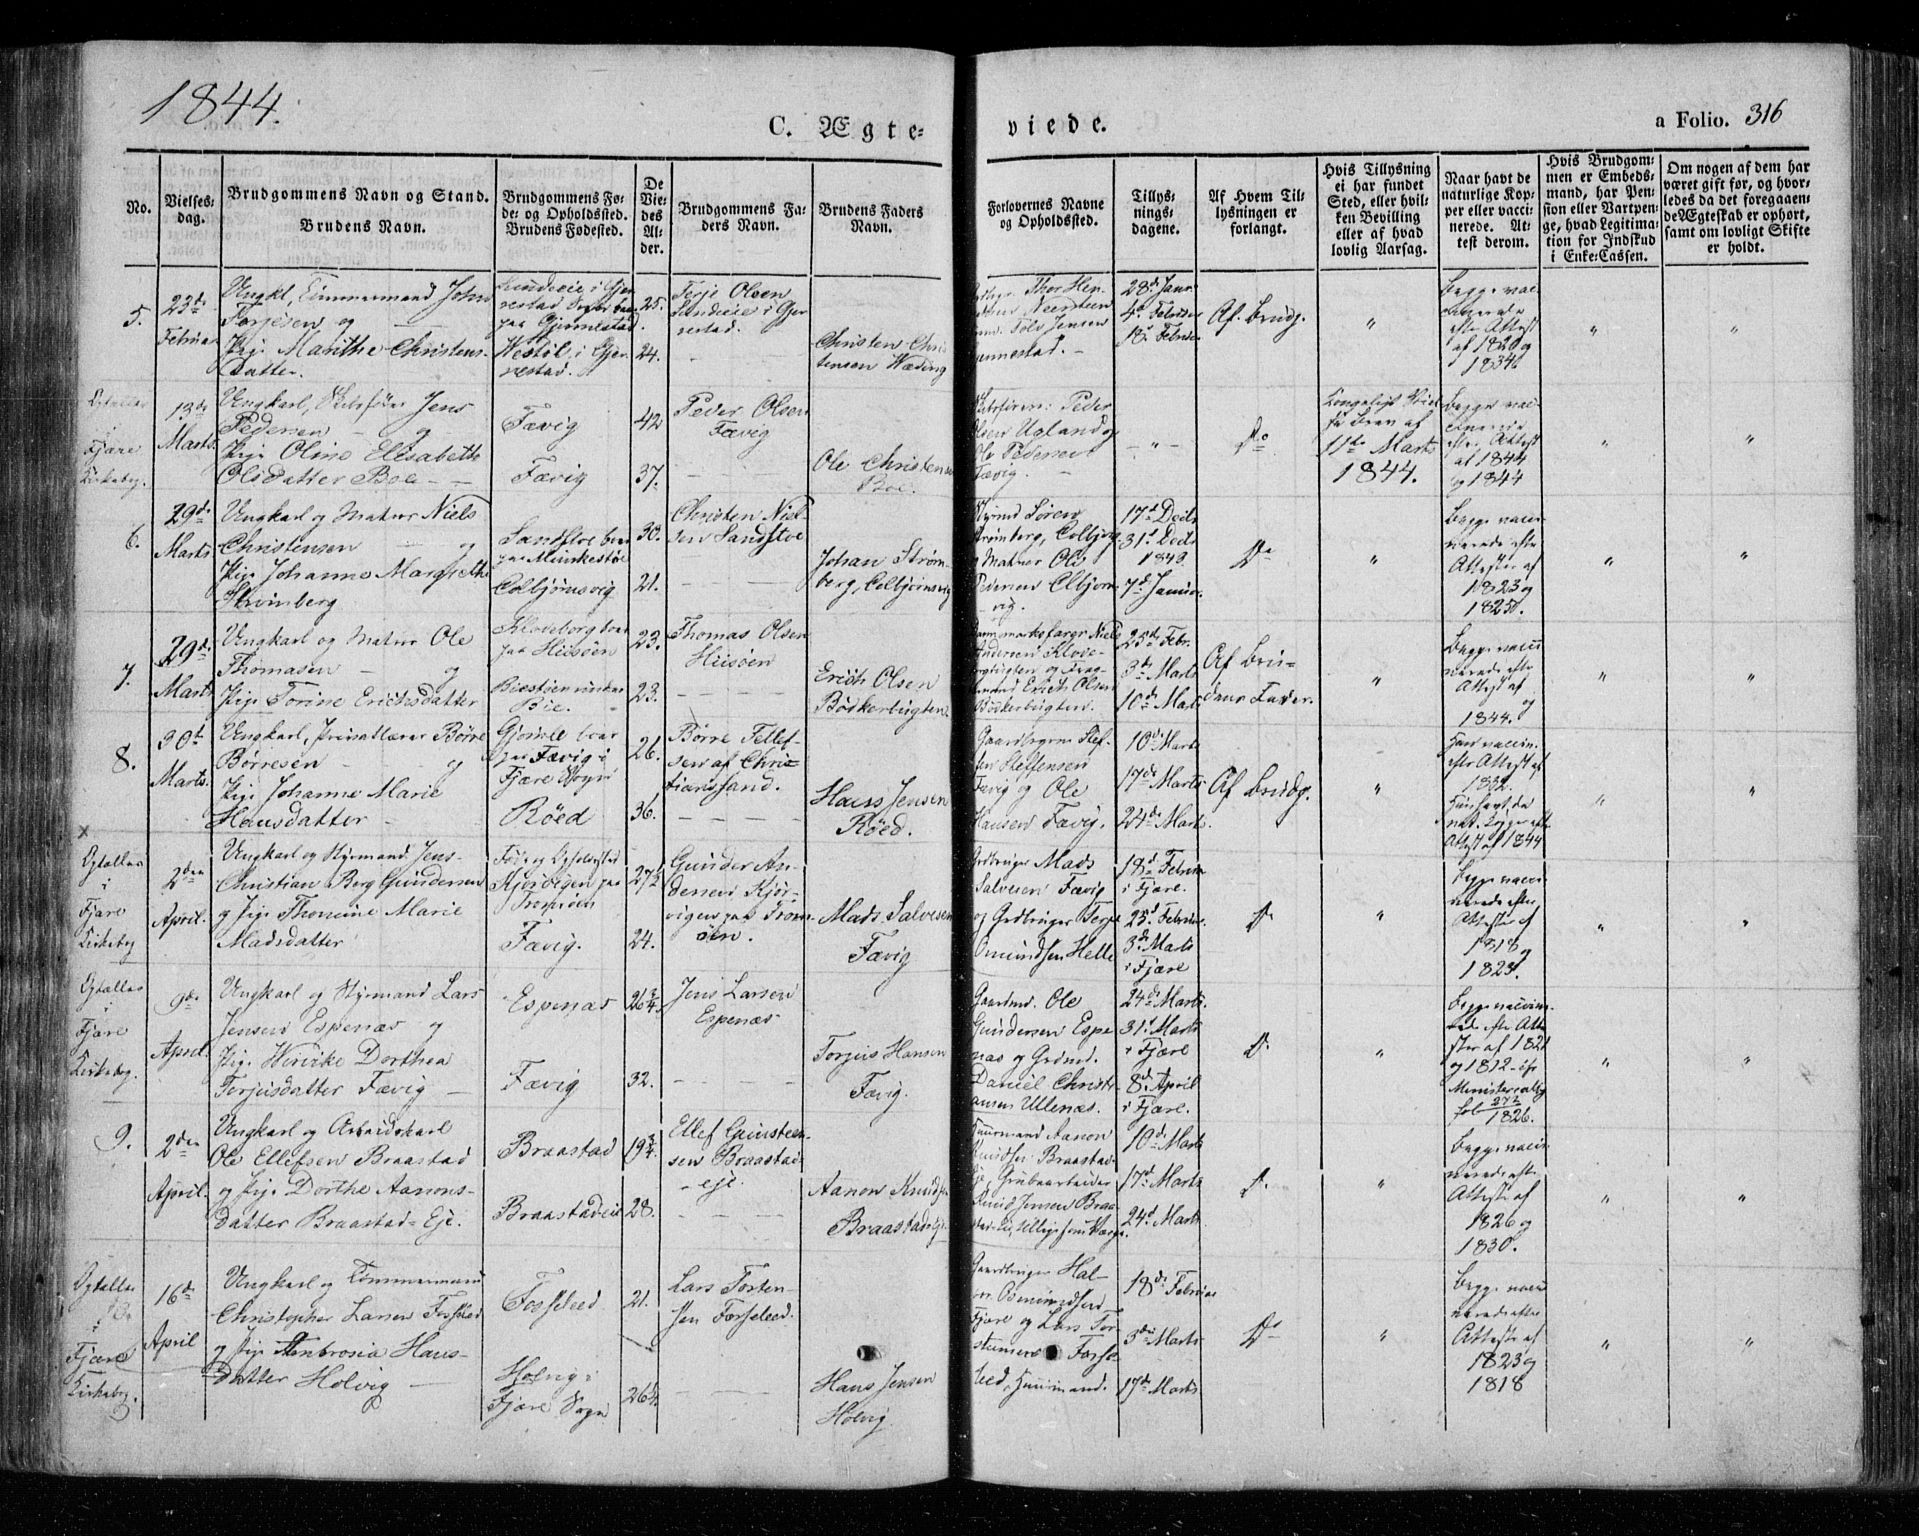 1844.
C. Ægte-
viede.
a Folio. 316
No.
Vielses-
dag.
Brudgommens Navn og Stand.
Brudens Navn.
Brudgommens Fø-
de- og Opholdssted.
Brudens Fødested.
De
Vie-
des
Al-
der.
Brudgommens Fa-
ders Navn.
Brudens Faders
Navn.
Forlovernes Navne
og Opholdssted.
Tillys-
nings-
dagene.
Af Hvem Til-
lysningen er
forlangt.
Hvis Tillysning
ei har fundet
Sted, eller hvil-
ken Bevilling
eller af hvad
lovlig Aarsag.
Naar havt de
naturlige Kop-
per eller vacci-
nerede. At-
test derom.
Hvis Brudgom-
men er Embeds-
mand, har Pen-
sion eller Vartpen-
ge, hvad Legitima-
tion for Indskud
i Enke-Cassen.
Om nogen af dem har
været gift før, og hvor-
ledes da det foregaaen-
de Ægteskab er ophørt,
samt om lovligt Skifte
er holdt.
5.
23de
Februar
Ungkl, Tømmermand John
Terjesen og
Pige Marithe Christens-
datter.
i Gjer-
restad
paa Gjennestad
Westøl i Gjer-
restad.
25.
24.
Terje Olsen
i Gjer-
restad.
Christen Chri-
stensen Wæding
Thor Hen-
Jensen
28de Janr
4de Februar
18de Februar
Af Brudg.
"
Begge vac-
cinerede
efter Attest
af 1820 og
1834
"
"
i
Fjære
Kirkebog.
13de
Marts
Ungkarl, Skibsfører Jens
Pedersen og
Pige Oline Elisabeth
Olsdatter Boe
Fævig
Fævig
42
37.
Peder Olsen
Fævig
Ole Christensen
Boe.
Skibsføreren: Peder
Olsen Ugland og
Ole Pedersen
Fævig.
"
Do
Kongeligt
Brev af
11te Marts
1844.
Begge vac-
cinerede
efter Attest
af 1844
og 1844
"
"
6.
29de
Marts
Ungkarl og Matros Niels
Christensen og
Pige Johanne Margrethe
Strömberg
Sandstøe boer
paa
Colbjørnsvig
30.
21.
Christen Niel-
sen Sandstøe
Johan Strøm-
berg, Colbjørnsvig
Søren
Strømberg, Colbjørns
og Matros Ole
Pedersen Colbjørns-
vig.
17de Decbr
31te Decbr
1843.
7de Januar
Do
"
Begge vacci-
nerede efter
Attester af
1823 og
1825.
"
"
7.
29de
Marts
Ungkarl og Matros Ole
Thomasen og
Pige Torine Erichsdatter
Kloveborg boer
paa Hiisøen
under
Bie.
23.
23.
Thomas Olsen
Hiisøen
Erich Olsen
Bødkerbugten
Danmarksfarer Niels
Andersen Klove-
Erich Olsen
Bødkerbugten.
25de Febr.
3de Marts
10de Marts
Af Bru-
dens Fader.
"
Begge vacci-
nerede efter
Attest af
og
1844.
"
"
8.
30te
Marts.
Ungkarl, Børre
Børresen og
Pige Johanne Marie
Hansdatter
boer
paa Fævig i
Fjære Sogn
Røed
26.
36.
Børre Tellef-
sen af Chri-
stianssand.
Hans Jensen
Røed.
Gaardbruger Stef-
fen Steffensen
Fævig og Ole
Hansen Fævig.
10de Marts
17de Marts
24de Marts.
Af Brudg.
"
Han vaccin.
efter Attest af
1832.
Hun havt de
nat. Kopper efter
Attest af 1844
"
"
x
Optalles
i
Fjære
Kirkebog
2den
April.
Ungkarl og Styrmand Jens
Christian Berg Gundersen
og Pige Thomine Marie
Madsdatter
Føde og Opholdssted
Kjørvigen paa
Tromøen
Fævig.
27½
24.
Gunder An-
dersen Kjør-
vigen paa Trom-
øen.
Mads Salvesen
Fævig
Grdbruger Mads
Salvesen Fævig
og Grdbruger Terje
Omundsen Helle
18de Februar
i Fjære.
25de Februar.
3de Marts
i Fjære
Do
"
Begge vacci-
nerede efter
Attest af
1818 og
1823.
"
"
Optalles
i
Fjære
Kirkebog.
9de
April.
Ungkarl og Styrmand Lars
Jensen Espenæs og
Pige Wivike Dorthea
Torjusdatter Fævig
Espenæs
Fævig
26¾
32.
Jens Larsen
Espenæs
Torjus Hansen
Fævig.
Gaardmd. Ole
Gundersen Espe-
næs og Grdmd.
Daniel Christi-
ansen Ullenæs.
24de Marts.
31te Marts
i Fjære
8de April
i Fjære.
Do
"
Begge vaccine-
rede efter Atte-
ster af 1821
og 1812
Ministerialbog
fol 272
1826.
"
"
9.
2den
April.
Ungkarl og Arbeidskarl
Ole Ellefsen Braastad
og Pige Dorthe Aanons-
datter Braastad-Eje.
Braastad
Braastadeie
19¾
28.
Ellef Gunsteen-
sen Braastad-
eje.
Aanon Knudsen
Braastadeje
Huusmand Aanon
Knudsen Braastad-
eje, Grubearbeider
Knud Jensen Braa-
10de Marts
17de Marts
24de Marts
Do
"
Begge vacci-
nerede efter
Attester af
1826 og
1830.
"
"
Optalles
i
Fjære
Kirkebog.
16de
April
Ungkarl og Tømmermand
Christopher Larsen Fosseleed
og Pige Ambrosia Hans-
datter Holvig
Fosseleed
Holvig i
Fjære Sogn
21.
26¼
Lars Torten-
sen Fosseleed.
Hans Jensen
Holvig
Gaardbruger Hal-
Osmundsen
Fjære og Lars Tor-
stensen Fosse-
leed, Huusmand.
18de Februar
3de Marts
17de Marts
Do
"
Begge vacci-
nerede efter
Attester af
1823 og
1818
"
"